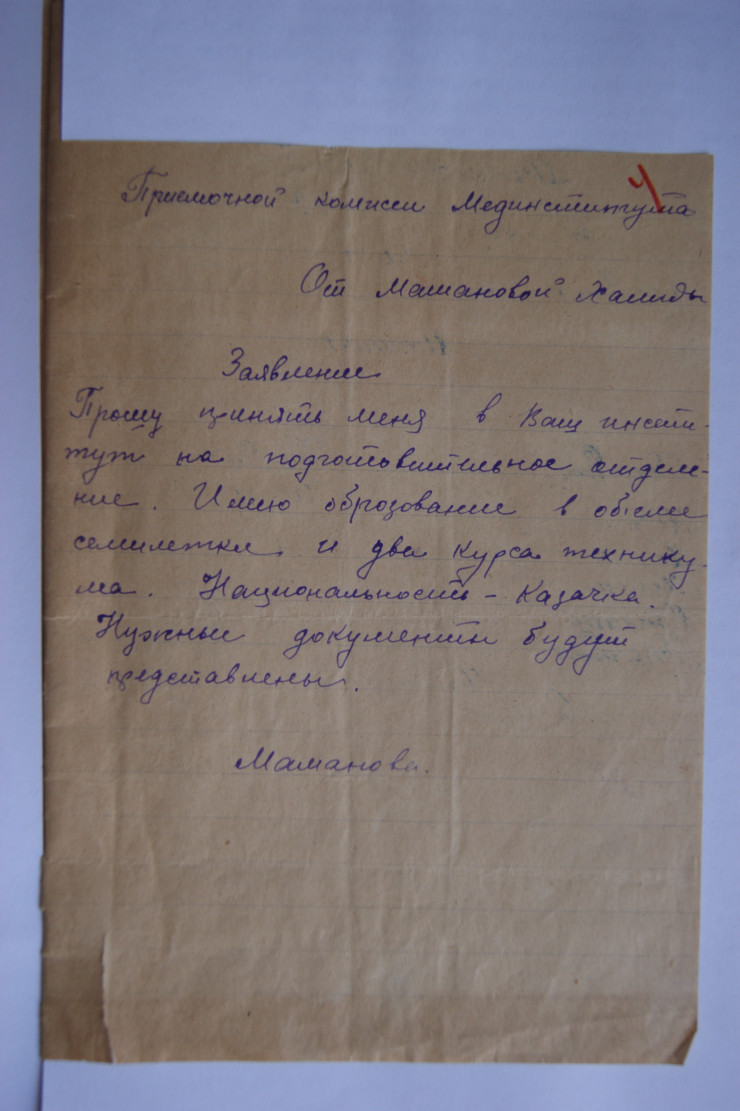 4
Приемочной комисси Мединститута
От Мамановой Халиды
Заявление
Прошу принять меня в Ваш инсти-
тут на подготовительное отделе-
ние. Имею оброзование в обьеме
семилетки и два курса технику-
ма. Национальность - Казачка.
Нужные документы будут
представлены.
Маманова.